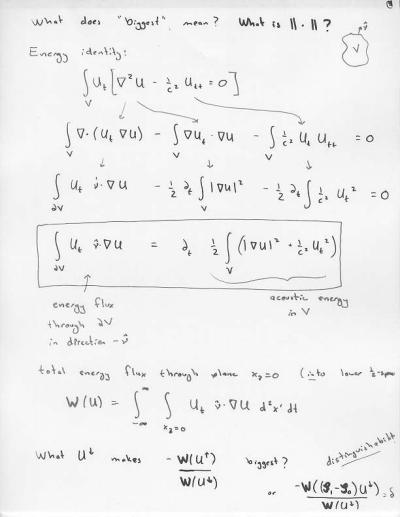 What does "biggest" mean? What is ||·||?
V ν̂
Energy identity:
∫_V U_t [∇²U − 1/c² U_tt = 0]
∫_V ∇·(U_t ∇U) − ∫_V ∇U_t·∇U − ∫_V 1/c² U_t U_tt = 0
∫_∂V U_t ν̂·∇U − 1/2 ∂_t ∫_V |∇U|² − 1/2 ∂_t ∫ 1/c² U_t² = 0
∫_∂V U_t ν̂·∇U = ∂_t 1/2 ∫_V (|∇U|² + 1/c² U_t²)
energy flux
through ∂V
in direction −ν̂
acoustic energy
in V
total energy flux through plane x₃=0 (into lower ½-space
W(U) = ∫_{-∞}^{∞} ∫_{x₃=0} U_t ν̂·∇U d²x' dt
What U↓ makes − W(U↑)/W(U↓) biggest?
distinguishability
or −W((𝒮₁−𝒮₀)U↓)/W(U↓) = δ